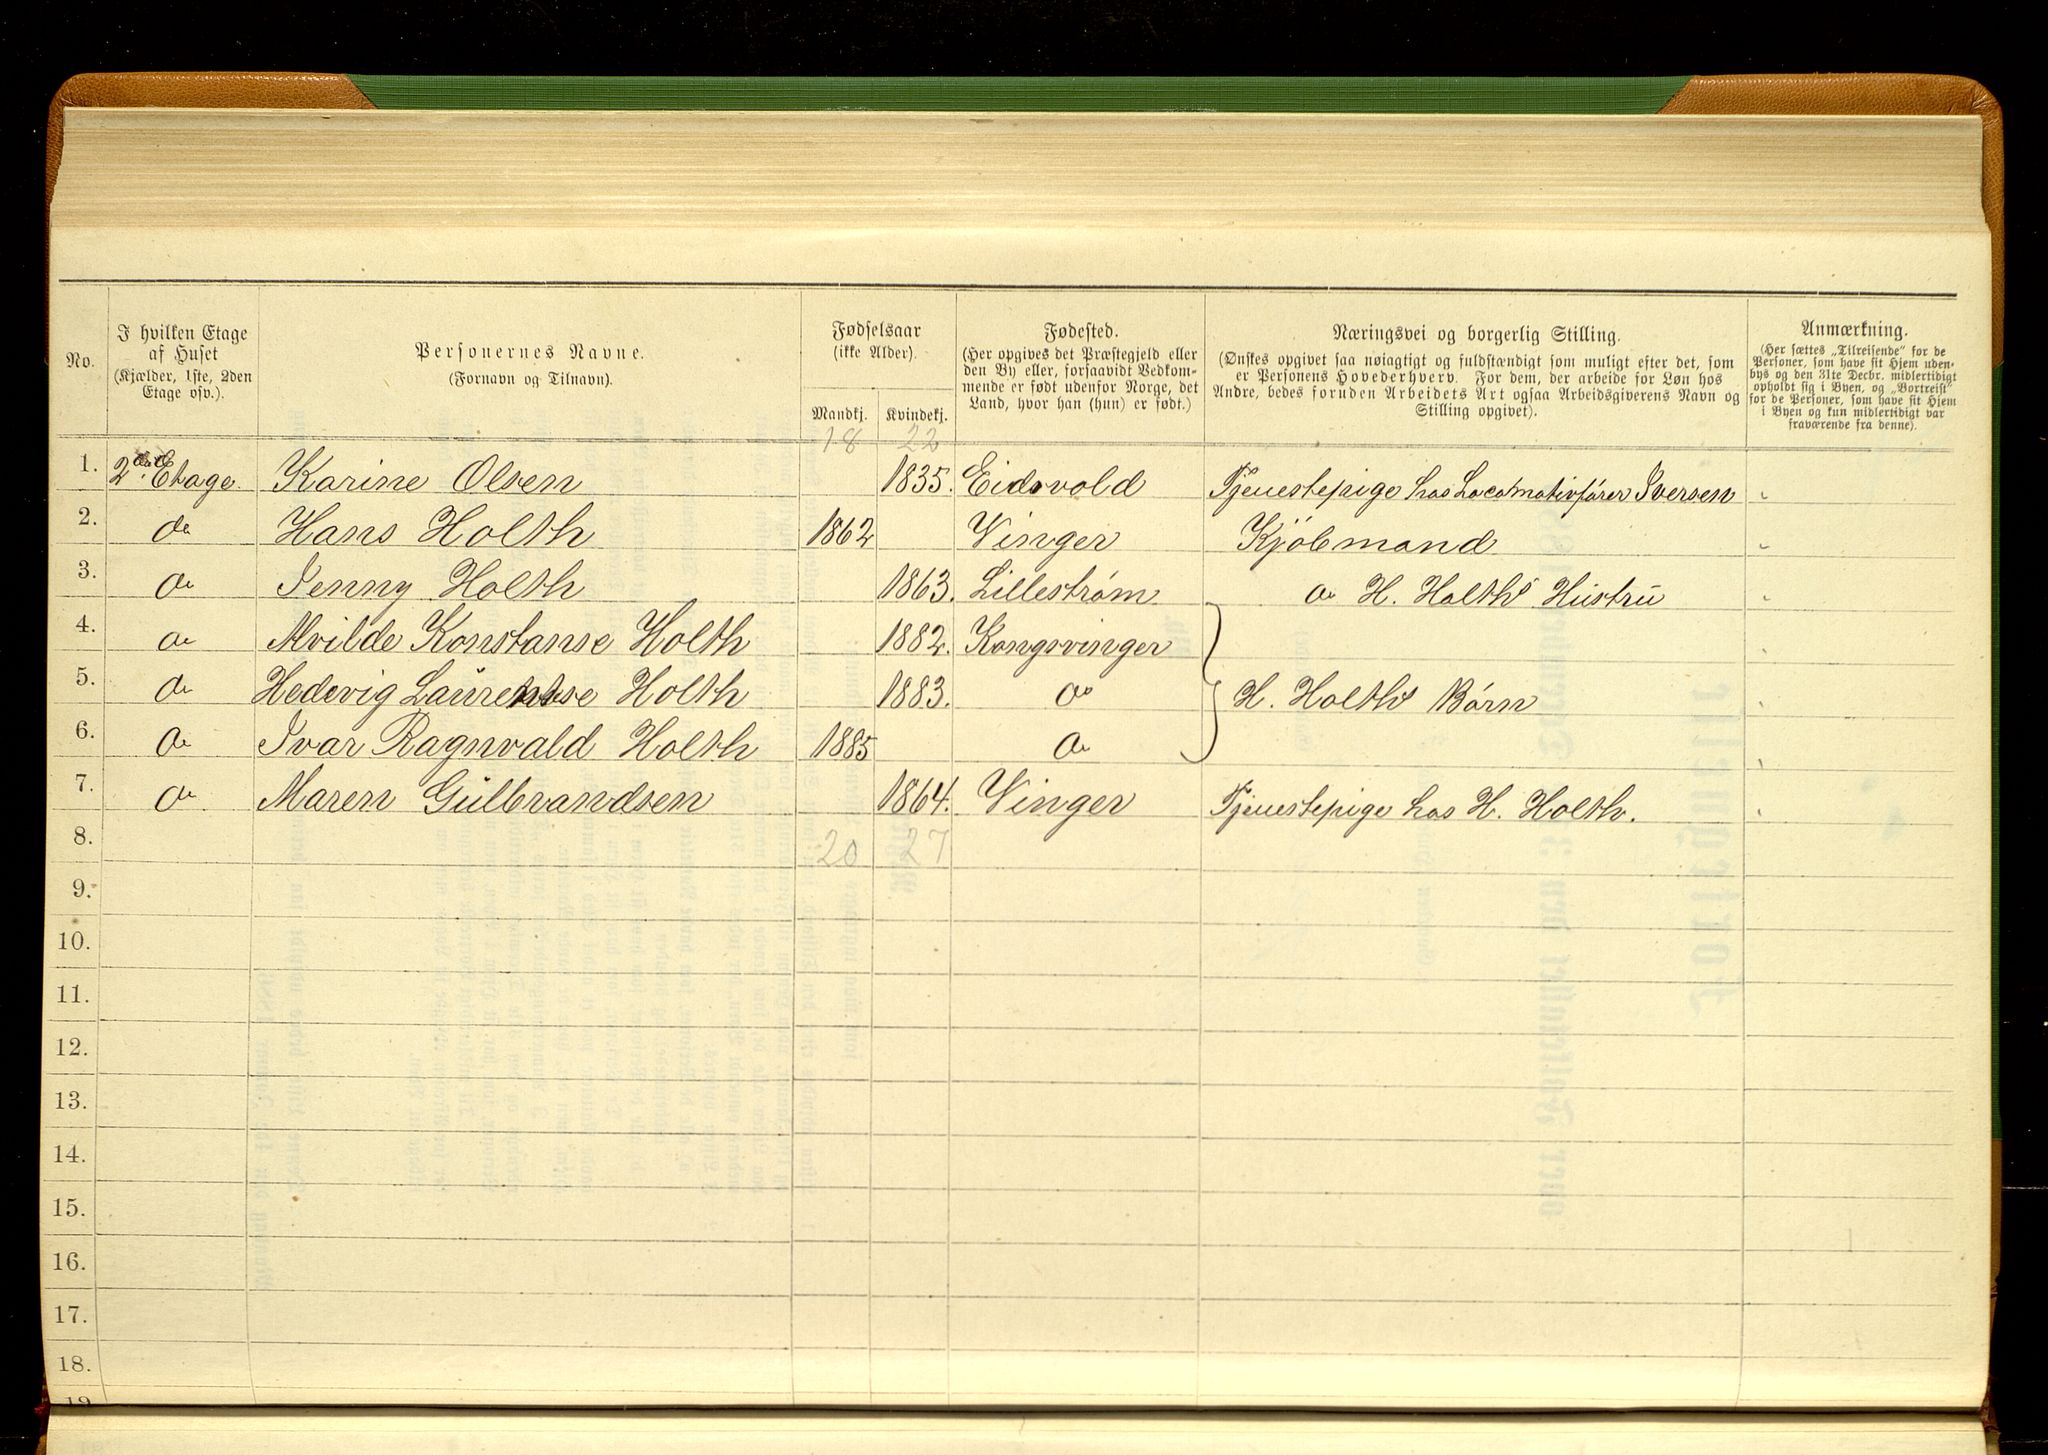 No.
I hvilken Etage
af Huset
(Kjælder, 1ste, 2den
Etage osv.).
Personernes Navne.
(Fornavn og Tilnavn).
Fødselsaar
(ikke Alder).
Mandkj.
Kvindekj.
Fødested.
(Her opgives det Præstegjeld eller
den By eller, forsaavidt Vedkom-
mende er født udenfor Norge, det
Land, hvor han (hun) er født.)
Næringsvei og borgerlig Stilling.
(Ønskes opgivet saa nøiagtigt og fuldstændigt som muligt efter det, som
er Personens Hovederhverv. For dem, der arbeide for Løn hos
Andre, bedes foruden Arbeidets Art ogsaa Arbeidsgiverens Navn og
Stilling opgivet).
Anmærkning.
(Her sættes „Tilreisende“ for de
Personer, som have sit Hjem uden-
bys og den 31te Decbr. midlertidigt
opholdt sig i Byen, og „Bortreist“
for de Personer, som have sit Hjem
i Byen og kun midlertidigt var
fraværende fra denne).
18 22
1. 2den Etage. Karine Olsen 1835. Eidsvold Tjenestepige hos Locomotivfører Iversen
2. do Hans Holth 1862 Vinger Kjöbmand
3. do Jenny Holth 1863. Lillestrøm do H. Holths Hustru
4. do Alvilde Konstanse Holth 1882. Kongsvinger
5. do Hedevig Laurentse Holth 1883. do H. Holths Børn
6. do Ivar Ragnvald Holth 1885 do
7. do Maren Gulbrandsen 1864. Vinger Tjenestepige hos H. Holth.
8. 20 27
9.
10.
11.
12.
13.
14.
15.
16.
17.
18.
19